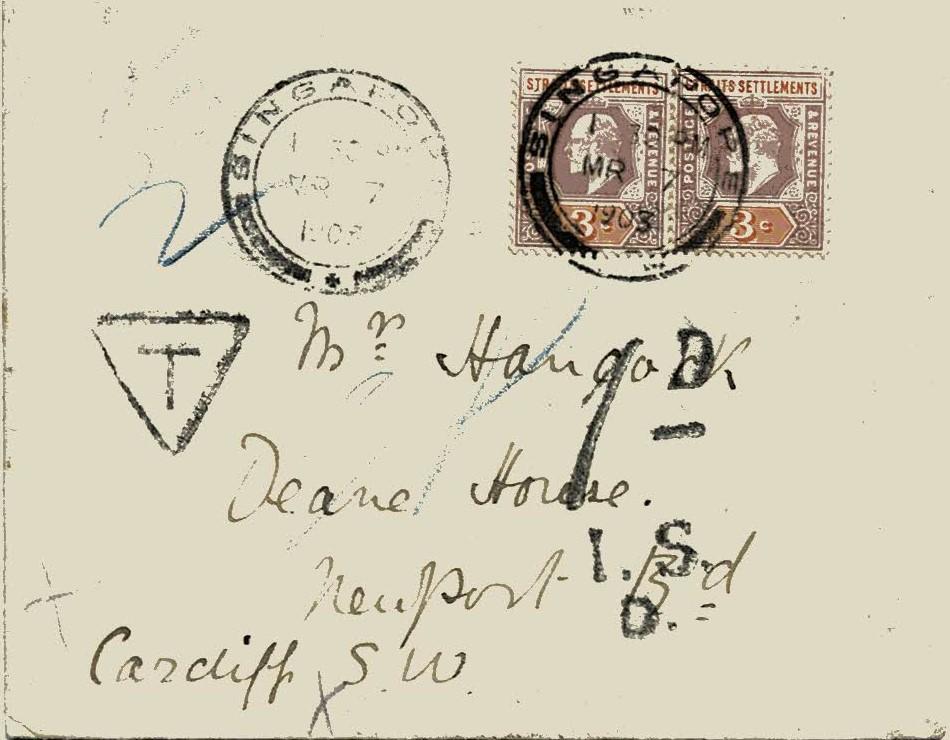 SINGAPO
1 30 PM
MR 7
1908
STRAITS SETTLEMENTS
& REVENUE
3c
STRAITS SETTLEMENTS
POS
& REVENUE
3c
SINGAPORE
1 30 PM
MR 7
1908
2
T
Mr Hancock
1 D
Deane House.
I.S.
Newport Rd
D.
Cardiff S.W.